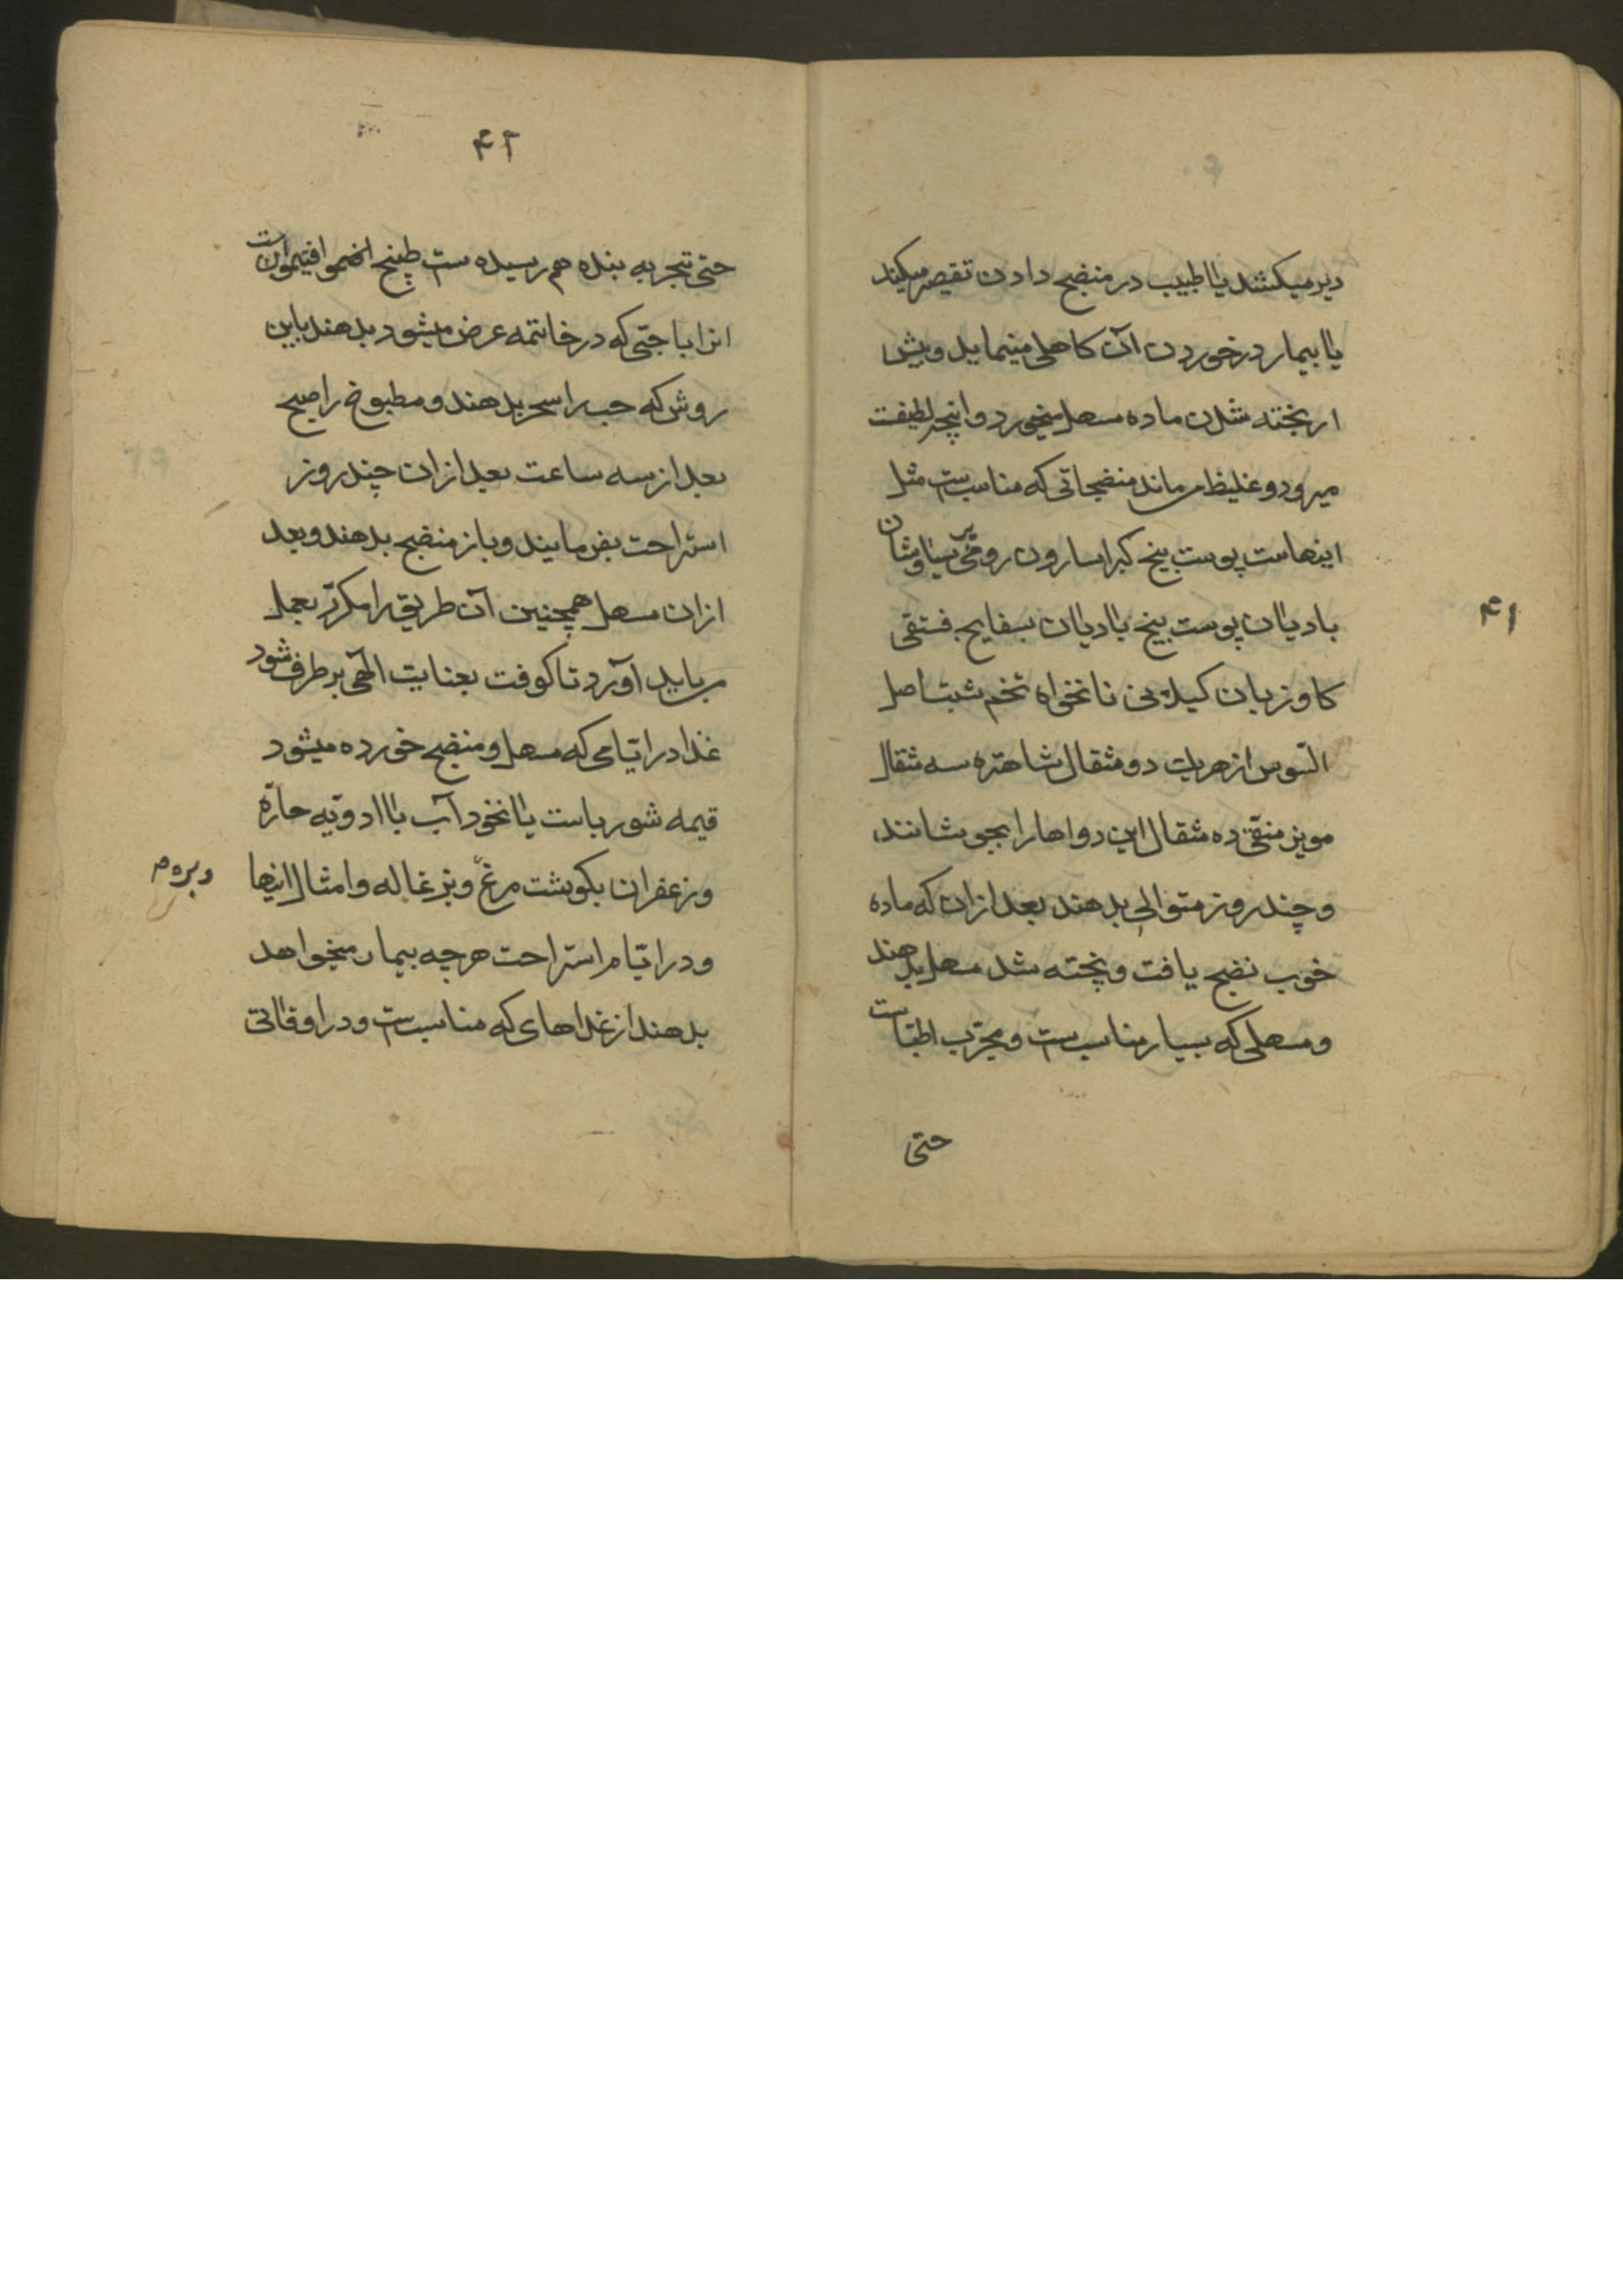 ۴۱
دیر میکشد یا طبیب در منضج دادن تقصیر میکند
یا بیمار در خوردن آن کاهلی مینماید و پیش
از پخته شدن ماده مسهل میخورد و انچه لطیفست
میرود و غلیظ میماند منضجاتی که مناسب‌ست مثل
اینهاست پوست بیخ کبر اسارون رومی پرسیاوشان
بادیان پوست بیخ بادیان بسفایج فستقی
کاوزبان کیلانی نانخواه تخم شبت اصل
السّوس از هریک دو مثقال شاهتره سه مثقال
مویز منقّی ده مثقال این دواها را بجوشانند
و چند روز متوالی بدهند بعد ازان که ماده
خوب نضج یافت و پخته شد مسهل بدهند
و مسهلی که بسیار مناسب‌ست و مجرّب اطبّاست
حتی
۴۲
حتی بتجربه بنده هم رسیده ست طبیخ افتیمون است
انرا با حبّی که در خاتمه عرض میشود بدهند باین
روش که حب را سحر بدهند و مطبوخ را صبح
بعد از سه ساعت بعد ازان چند روز
استراحت بفرمایند و باز منضج بدهند و بعد
ازان مسهل همچنین آن طریق را مکرّر بعمل
میباید آورد تا کوفت بعنایت الهی برطرف شود
غذا در ایّامی که مسهل و منضج خورده میشود
قیمه شورباست یا نخود آب با ادویّه حارّه
و زعفران بکوشت مرغ و بزغاله و امثال اینها
و بره م
و در ایّام استراحت هرچه بیمار میخواهد
بدهند از غذاهای که مناسب‌ست و در اوقاتی